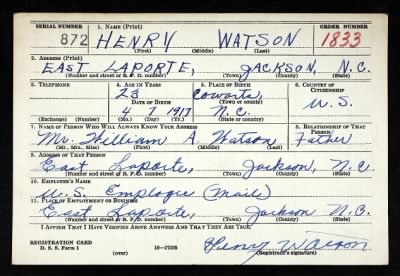 SERIAL NUMBER 1. NAME (Print) ORDER NUMBER
872 HENRY WATSON 1833
(First) (Middle) (Last)
2. ADDRESS (Print)
EAST LAPORTE, JACKSON, N.C.
(Number and street or R. F. D. number) (Town) (County) (State)
3. TELEPHONE 4. AGE IN YEARS 5. PLACE OF BIRTH 6. COUNTRY OF CITIZENSHIP
23 Cowarts,
DATE OF BIRTH (Town or county) U.S.
4 7 1917 N.C.
(Exchange) (Number) (Mo.) (Day) (Yr.) (State or country)
7. NAME OF PERSON WHO WILL ALWAYS KNOW YOUR ADDRESS 8. RELATIONSHIP OF THAT PERSON
Mr. William A. Watson Father
(Mr., Mrs., Miss) (First) (Middle) (Last)
9. ADDRESS OF THAT PERSON
East Laporte, Jackson, N.C.
(Number and street or R. F. D. number) (Town) (County) (State)
10. EMPLOYER'S NAME
U.S. Employee (Mail)
11. PLACE OF EMPLOYMENT OR BUSINESS
East Laporte, Jackson N.C.
(Number and street or R. F. D. number) (Town) (County) (State)
I AFFIRM THAT I HAVE VERIFIED ABOVE ANSWERS AND THAT THEY ARE TRUE.
REGISTRATION CARD
D. S. S. Form 1 16—17105 Henry Watson
(over) (Registrant's signature)